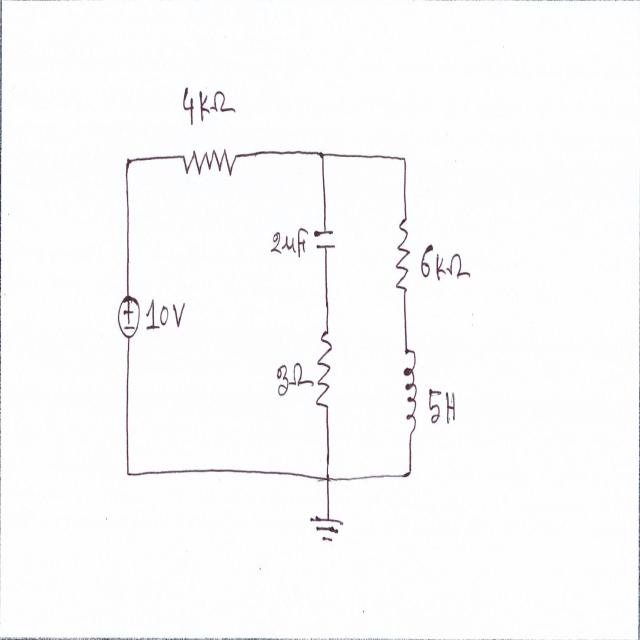 4KΩ
2uF
6KΩ
10V
3Ω
5H